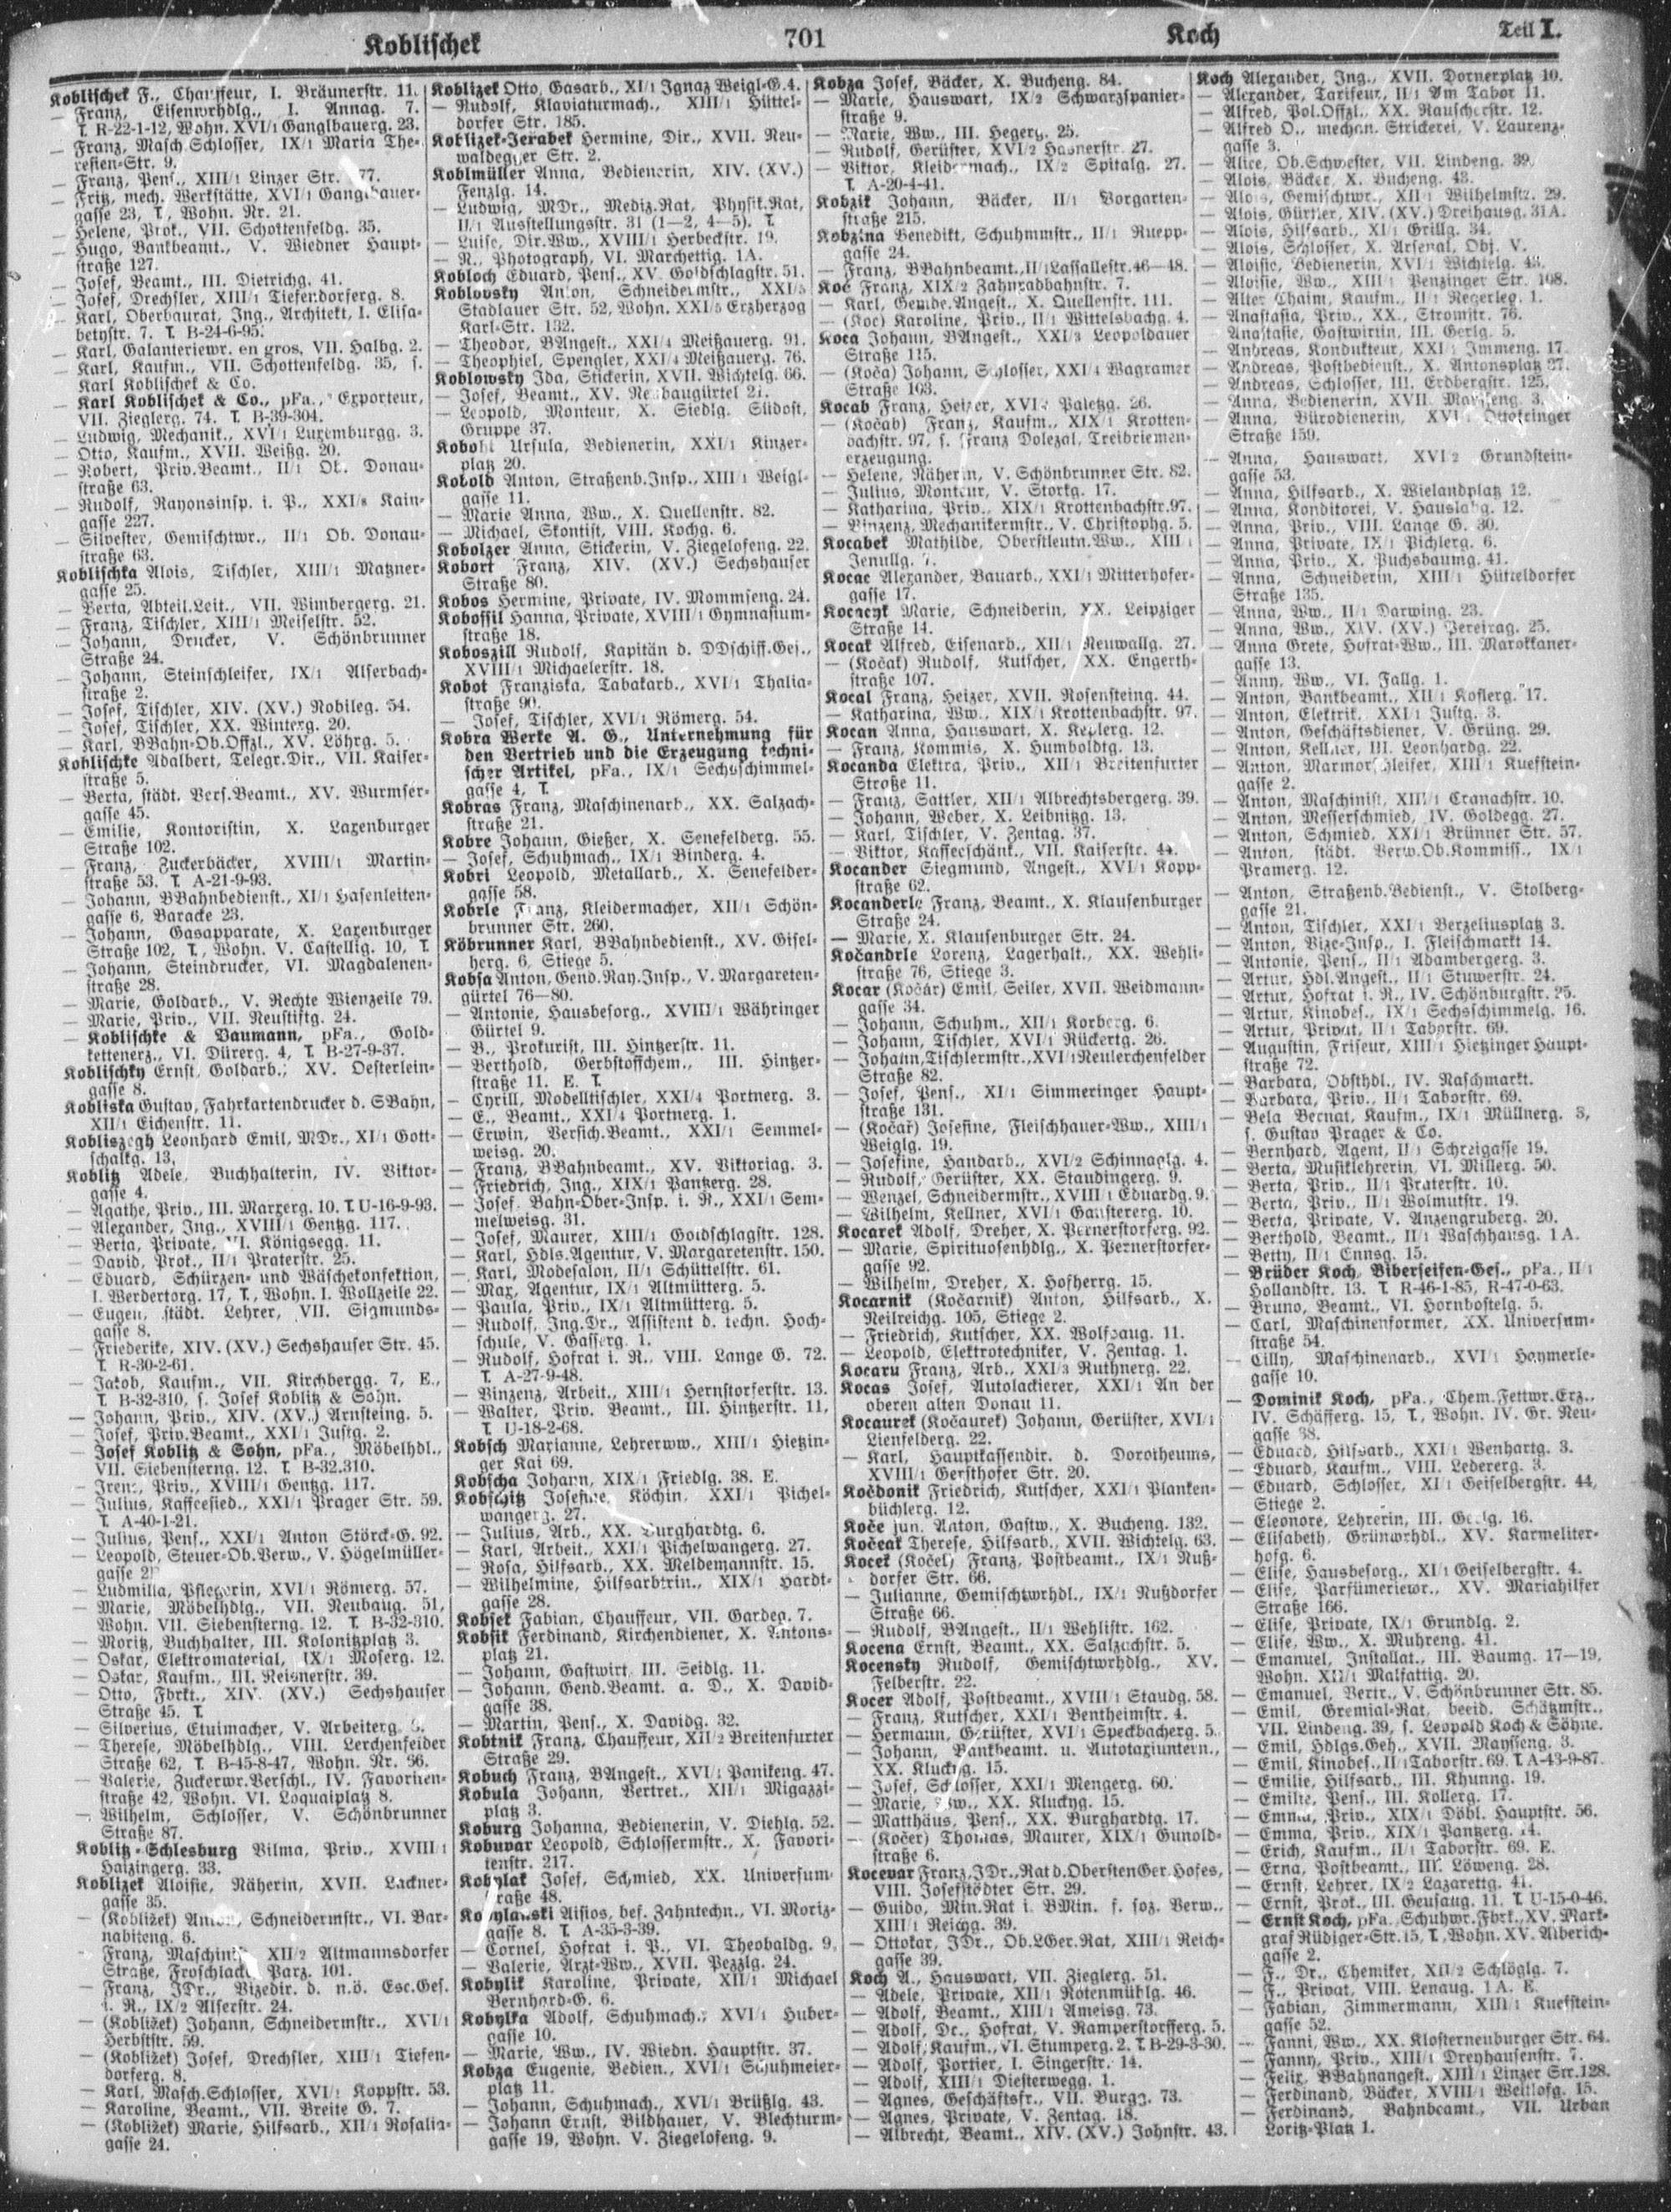 Koblischek
701
Koch
Teil I.
Koblischek F., Chauffeur, I. Bräunerstr. 11.
— Franz, Eisenwrhdlg., I. Annag. 7.
T. R-22-1-12, Wohn. XVI/1 Ganglbauerg. 23.
— Franz, Masch.Schlosser, IX/1 Maria The-
resien-Str. 9.
— Franz, Pens., XIII/1 Linzer Str. 77.
— Fritz, mech. Werkstätte, XVI/1 Ganglbauer-
gasse 23, T., Wohn. Nr. 21.
— Helene, Prok., VII. Schottenfeldg. 35.
— Hugo, Bankbeamt., V. Wiedner Haupt-
straße 127.
— Josef, Beamt., III. Dietrichg. 41.
— Josef, Drechsler, XIII/1 Tiefendorferg. 8.
— Karl, Oberbaurat, Ing., Architekt, I. Elisa-
bethstr. 7. T. B-24-6-95.
— Karl, Galanteriewr. en gros, VII. Halbg. 2.
— Karl, Kaufm., VII. Schottenfeldg. 35, s.
Karl Koblischek & Co.
— Karl Koblischek & Co., pFa., Exporteur,
VII. Zieglerg. 74. T. B-39-304.
— Ludwig, Mechanik., XVI/1 Luxemburgg. 3.
— Otto, Kaufm., XVII. Weißg. 20.
— Robert, Priv.Beamt., II/1 Ob. Donau-
straße 63.
— Rudolf, Rayonsinsp. i. P., XXI/8 Kain-
gasse 227.
— Silvester, Gemischtwr., II/1 Ob. Donau-
straße 63.
Koblischka Alois, Tischler, XIII/1 Matzner-
gasse 25.
— Berta, Abteil.Leit., VII. Wimbergerg. 21.
— Franz, Tischler, XIII/1 Meiselstr. 52.
— Johann, Drucker, V. Schönbrunner
Straße 24.
— Johann, Steinschleifer, IX/1 Alserbach-
straße 2.
— Josef, Tischler, XIV. (XV.) Robileg. 54.
— Josef, Tischler, XX. Winterg. 20.
— Karl, BBahn-Ob.Offzl., XV. Löhrg. 5.
Koblischke Adalbert, Telegr.Dir., VII. Kaiser-
straße 5.
— Berta, städt. Vers.Beamt., XV. Wurmser-
gasse 45.
— Emilie, Kontoristin, X. Laxenburger
Straße 102.
— Franz, Zuckerbäcker, XVIII/1 Martin-
straße 53. T. A-21-9-93.
— Johann, BBahnbedienst., XI/1 Hasenleiten-
gasse 6, Baracke 23.
— Johann, Gasapparate, X. Laxenburger
Straße 102, T., Wohn. V. Castellig. 10, T.
— Johann, Steindrucker, VI. Magdalenen-
straße 28.
— Marie, Goldarb., V. Rechte Wienzeile 79.
— Marie, Priv., VII. Neustiftg. 24.
— Koblischke & Baumann, pFa., Gold-
kettenerz., VI. Dürerg. 4, T. B-27-9-37.
Koblischky Ernst, Goldarb., XV. Oesterlein-
gasse 8.
Kobliska Gustav, Fahrkartendrucker d. SBahn,
XII/1 Eichenstr. 11.
Kobliszegh Leonhard Emil, MDr., XI/1 Gott-
schalkg. 13.
Koblitz Adele, Buchhalterin, IV. Viktor-
gasse 4.
— Agathe, Priv., III. Marxerg. 10. T. U-16-9-93.
— Alexander, Ing., XVIII/1 Gentzg. 117.
— Berta, Private, VI. Königsegg. 11.
— David, Prok., II/1 Praterstr. 25.
— Eduard, Schürzen- und Wäschekonfektion,
I. Werdertorg. 17, T., Wohn. I. Wollzeile 22.
— Eugen, städt. Lehrer, VII. Sigmunds-
gasse 8.
— Friederike, XIV. (XV.) Sechshauser Str. 45.
T. R-30-2-61.
— Jakob, Kaufm., VII. Kirchbergg. 7, E.,
T. B-32-310, s. Josef Koblitz & Sohn.
— Johann, Priv., XIV. (XV.) Arnsteing. 5.
— Josef, Priv.Beamt., XXI/1 Justg. 2.
— Josef Koblitz & Sohn, pFa., Möbelhdl.,
VII. Siebensterng. 12. T. B-32.310.
— Irene, Priv., XVIII/1 Gentzg. 117.
— Julius, Kaffeesied., XXI/1 Prager Str. 59.
T. A-40-1-21.
— Julius, Pens., XXI/1 Anton Störck-G. 92.
— Leopold, Steuer-Ob.Verw., V. Högelmüller-
gasse
— Ludmilla, Pflegerin, XVI/1 Römerg. 57.
— Marie, Möbelhdlg., VII. Neubaug. 51,
Wohn. VII. Siebensterng. 12. T. B-32-310.
— Moritz, Buchhalter, III. Kolonitzplatz 3.
— Oskar, Elektromaterial, IX/1 Moserg. 12.
— Oskar, Kaufm., III. Reisnerstr. 39.
— Otto, Fbrkt., XIV. (XV.) Sechshauser
Straße 45. T.
— Silverius, Etuimacher, V. Arbeiterg.
— Therese, Möbelhdlg., VIII. Lerchenfelder
Straße 62, T. B-45-8-47, Wohn. Nr. 36.
— Valerie, Zuckerwr.Verschl., IV. Favoriten-
straße 42, Wohn. VI. Loquaiplatz 8.
— Wilhelm, Schlosser, V. Schönbrunner
Straße 87.
Koblitz-Schlesburg Vilma, Priv., XVIII/1
Haizingerg. 33.
Koblizek Aloisie, Näherin, XVII. Lackner-
gasse 35.
— (Kobližek) Anton, Schneidermstr., VI. Bar-
nabiteng. 6.
— Franz, Maschinist, XII/2 Altmannsdorfer
Straße, Froschlacke Parz. 101.
— Franz, JDr., Vizedir. d. n.ö. Esc.Ges.
i. R., IX/2 Alserstr. 24.
— (Kobližek) Johann, Schneidermstr., XVI/1
Herbststr. 59.
— (Kobližek) Josef, Drechsler, XIII/1 Tiefen-
dorferg. 8.
— Karl, Masch.Schlosser, XVI/1 Koppstr. 53.
— Karoline, Beamt., VII. Breite G. 7.
— (Kobližek) Marie, Hilfsarb., XII/1 Rosalia-
gasse 24.
Koblizek Otto, Gasarb., XI/1 Ignaz Weigl-G. 4.
— Rudolf, Klaviaturmach., XIII/1 Hüttel-
dorfer Str. 185.
Koblizek-Jerabek Hermine, Dir., XVII. Neu-
waldegger Str. 2.
Koblmüller Anna, Bedienerin, XIV. (XV.)
Fenzlg. 14.
— Ludwig, MDr., Mediz.Rat, Physik.Rat,
II/1 Ausstellungsstr. 31 (1—2, 4—5). T.
— Luise, Dir.Ww., XVIII/1 Herbeckstr. 19.
— R., Photograph, VI. Marchettig. 1A.
Kobloch Eduard, Pens., XV. Goldschlagstr. 51.
Koblovsky Anton, Schneidermstr., XXI/5
Stadlauer Str. 52, Wohn. XXI/5 Erzherzog
Karl-Str. 132.
— Theodor, BAngest., XXI/4 Meißauerg. 91.
— Theophiel, Spengler, XXI/4 Meißauerg. 76.
Koblowsky Ida, Stickerin, XVII. Wichtelg. 66.
— Josef, Beamt., XV. Neubaugürtel 21.
— Leopold, Monteur, X. Siedlg. Südost,
Gruppe 37.
Ursula, Bedienerin, XXI/1 Kinzer-
platz 20.
Kobold Anton, Straßenb.Insp., XIII/1 Weigl-
gasse 11.
— Marie Anna, Ww., X. Quellenstr. 82.
— Michael, Skontist, VIII. Kochg. 6.
Kobolzer Anna, Stickerin, V. Ziegelofeng. 22.
Kobort Franz, XIV. (XV.) Sechshauser
Straße 80.
Kobos Hermine, Private, IV. Mommseng. 24.
Kobossil Hanna, Private, XVIII/1 Gymnasium-
straße 18.
Koboszill Rudolf, Kapitän d. DDschiff.Ges.,
XVIII/1 Michaelerstr. 18.
Kobot Franziska, Tabakarb., XVI/1 Thalia-
straße 90.
— Josef, Tischler, XVI/1 Römerg. 54.
Kobra Werke A. G., Unternehmung für
den Vertrieb und die Erzeugung techni-
scher Artikel, pFa., IX/1 Sechsschimmel-
gasse 4, T.
Kobras Franz, Maschinenarb., XX. Salzach-
straße 21.
Kobre Johann, Gießer, X. Senefelderg. 55.
— Josef, Schuhmach., IX/1 Binderg. 4.
Kobri Leopold, Metallarb., X. Senefelder-
gasse 58.
Kobrle Franz, Kleidermacher, XII/1 Schön-
brunner Str. 260.
Köbrunner Karl, BBahnbedienst., XV. Gisel-
herg. 6, Stiege 5.
Kobsa Anton, Gend.Ray.Insp., V. Margareten-
gürtel 76—80.
— Antonie, Hausbesorg., XVIII/1 Währinger
Gürtel 9.
— B., Prokurist, III. Hintzerstr. 11.
— Berthold, Gerbstoffchem., III. Hintzer-
straße 11. E. T.
— Cyrill, Modelltischler, XXI/4 Portnerg. 3.
— E., Beamt., XXI/4 Portnerg. 1.
— Erwin, Versich.Beamt., XXI/1 Semmel-
weisg. 20.
— Franz, BBahnbeamt., XV. Viktoriag. 3.
— Friedrich, Ing., XIX/1 Pantzerg. 28.
— Josef, Bahn-Ober-Insp. i. R., XXI/1 Sem-
melweisg. 31.
— Josef, Maurer, XIII/1 Goldschlagstr. 128.
— Karl, Hdls.Agentur, V. Margaretenstr. 150.
— Karl, Modesalon, II/1 Schüttelstr. 61.
— Max, Agentur, IX/1 Altmütterg. 5.
— Paula, Priv., IX/1 Altmütterg. 5.
— Rudolf, Ing.Dr., Assistent d. techn. Hoch-
schule, V. Gasserg. 1.
— Rudolf, Hofrat i. R., VIII. Lange G. 72.
T. A-27-9-48.
— Vinzenz, Arbeit., XIII/1 Hernstorferstr. 13.
— Walter, Priv. Beamt., III. Hintzerstr. 11,
T. U-18-2-68.
Kobsch Marianne, Lehrerww., XIII/1 Hietzin-
ger Kai 69.
Kobscha Johann, XIX/1 Friedlg. 38. E.
Kobschitz Josefine, Köchin, XXI/1 Pichel-
wangerg. 27.
— Julius, Arb., XX. Burghardtg. 6.
— Karl, Arbeit., XXI/1 Pichelwangerg. 27.
— Rosa, Hilfsarb., XX. Meldemannstr. 15.
— Wilhelmine, Hilfsarbtrin., XIX/1 Hardt-
gasse 28.
Kobsek Fabian, Chauffeur, VII. Gardeg. 7.
Kobsik Ferdinand, Kirchendiener, X. Antons-
platz 21.
— Johann, Gastwirt, III. Seidlg. 11.
— Johann, Gend.Beamt. a. D., X. David-
gasse 38.
— Martin, Pens., X. Davidg. 32.
Kobtnik Franz, Chauffeur, XII/2 Breitenfurter
Straße 29.
Kobuch Franz, BAngest., XVI/1 Panikeng. 47.
Kobula Johann, Vertret., XII/1 Migazzi-
platz 3.
Koburg Johanna, Bedienerin, V. Diehlg. 52.
Kobuvar Leopold, Schlossermstr., X. Favori-
tenstr. 217.
Kobylak Josef, Schmied, XX. Universum-
straße 48.
Kobylanski Aisios, bef. Zahntechn., VI. Moriz-
gasse 8. T. A-35-3-39.
— Cornel, Hofrat i. P., VI. Theobaldg. 9.
— Valerie, Arzt-Ww., XVII. Pezzlg. 24.
Kobylik Karoline, Private, XII/1 Michael
Bernhard-G. 6.
Kobylka Adolf, Schuhmach., XVI/1 Huber-
gasse 10.
— Marie, Ww., IV. Wiedn. Hauptstr. 37.
Kobza Eugenie, Bedien., XVI/1 Schuhmeier-
platz 11.
— Johann, Schuhmach., XVI/1 Brüßlg. 43.
— Johann Ernst, Bildhauer, V. Blechturm-
gasse 19, Wohn. V. Ziegelofeng. 9.
Kobza Josef, Bäcker, X. Bucheng. 84.
— Marie, Hauswart, IX/2 Schwarzspanier-
straße 9.
— Marie, Ww., III. Hegerg. 25.
— Rudolf, Gerüster, XVI/2 Hasnerstr. 27.
— Viktor, Kleidermach., IX/2 Spitalg. 27.
T. A-20-4-41.
Kobzik Johann, Bäcker, II/1 Vorgarten-
straße 215.
Kobzina Benedikt, Schuhmmstr., II/1 Ruepp-
gasse 24.
— Franz, BBahnbeamt., II/1 Lassallestr. 46—48.
Koč Franz, XIX/2 Zahnradbahnstr. 7.
— Karl, Gemde.Angest., X. Quellenstr. 111.
— (Koc) Karoline, Priv., II/1 Wittelsbachg. 4.
Koca Johann, BAngest., XXI/3 Leopoldauer
Straße 115.
— (Koča) Johann, Schlosser, XXI/4 Wagramer
Straße 103.
Kocab Franz, Heizer, XVI/2 Paletzg. 26.
— (Kočab) Franz, Kaufm., XIX/1 Krotten-
bachstr. 97, s. Franz Dolezal, Treibriemen-
erzeugung.
— Helene, Näherin, V. Schönbrunner Str. 82.
— Julius, Monteur, V. Storkg. 17.
— Katharina, Priv., XIX/1 Krottenbachstr. 97.
— Vinzenz, Mechanikermstr., V. Christophg. 5.
Kocabek Mathilde, Oberstleutn.Ww., XIII/1
Jenullg. 7.
Kocac Alexander, Bauarb., XXI/1 Mitterhofer-
gasse 17.
Kocaczyk Marie, Schneiderin, XX. Leipziger
Straße 14.
Kocak Alfred, Eisenarb., XII/1 Neuwallg. 27.
— (Kočak) Rudolf, Kutscher, XX. Engerth-
straße 107.
Kocal Franz, Heizer, XVII. Rosensteing. 44.
— Katharina, Ww., XIX/1 Krottenbachstr. 97.
Kocan Anna, Hauswart, X. Keplerg. 12.
— Franz, Kommis, X. Humboldtg. 13.
Kocanda Elektra, Priv., XII/1 Breitenfurter
Straße 11.
— Franz, Sattler, XII/1 Albrechtsbergerg. 39.
— Johann, Weber, X. Leibnitzg. 13.
— Karl, Tischler, V. Zentag. 37.
— Viktor, Kaffeeschänk., VII. Kaiserstr. 44.
Kocander Siegmund, Angest., XVI/1 Kopp-
straße 62.
Kocanderle Franz, Beamt., X. Klausenburger
Straße 24.
— Marie, X. Klausenburger Str. 24.
Kočandrle Lorenz, Lagerhalt., XX. Wehli-
straße 76, Stiege 3.
Kocar (Kočár) Emil, Seiler, XVII. Weidmann-
gasse 34.
— Johann, Schuhm., XII/1 Korberg. 6.
— Johann, Tischler, XVI/1 Rückertg. 26.
— Johann, Tischlermstr., XVI/1 Neulerchenfelder
Straße 82.
— Josef, Pens., XI/1 Simmeringer Haupt-
straße 131.
— (Kočař) Josefine, Fleischhauer-Ww., XIII/1
Weiglg. 19.
— Josefine, Handarb., XVI/2 Schinnaglg. 4.
— Rudolf, Gerüster, XX. Staudingerg. 9.
— Wenzel, Schneidermstr., XVIII/1 Eduardg. 9.
— Wilhelm, Kellner, XVI/1 Gaustererg. 10.
Kocarek Adolf, Dreher, X. Pernerstorferg. 92.
— Marie, Spirituosenhdlg., X. Pernerstorfer-
gasse 92.
— Wilhelm, Dreher, X. Hofherrg. 15.
Kocarnik (Kočarnik) Anton, Hilfsarb., X.
Neilreichg. 105, Stiege 2.
— Friedrich, Kutscher, XX. Wolfsaug. 11.
— Leopold, Elektrotechniker, V. Zentag. 1.
Kocaru Franz, Arb., XXI/3 Ruthnerg. 22.
Kocas Josef, Autolackierer, XXI/1 An der
oberen alten Donau 11.
Kocaurek (Kočaurek) Johann, Gerüster, XVI/1
Lienfelderg. 22.
— Karl, Hauptkassendir. d. Dorotheums,
XVIII/1 Gersthofer Str. 20.
Kočdonik Friedrich, Kutscher, XXI/1 Planken-
büchlerg. 12.
Koče jun. Anton, Gastw., X. Bucheng. 132.
Kočeak Therese, Hilfsarb., XVII. Wichtelg. 63.
Kocek (Kočel) Franz, Postbeamt., IX/1 Nuß-
dorfer Str. 66.
— Julianne, Gemischtwrhdl., IX/1 Nußdorfer
Straße 66.
— Rudolf, BAngest., II/1 Wehlistr. 162.
Kocena Ernst, Beamt., XX. Salzachstr. 5.
Kocensky Rudolf, Gemischtwrhdlg., XV.
Felberstr. 22.
Kocer Adolf, Postbeamt., XVIII/1 Staudg. 58.
— Franz, Kutscher, XXI/1 Bentheimstr. 4.
— Hermann, Gerüster, XVI/1 Speckbacherg. 5.
— Johann, Bankbeamt. u. Autotaxiuntern.,
XX. Kluckyg. 15.
— Josef, Schlosser, XXI/1 Mengerg. 60.
— Marie, Ww., XX. Kluckyg. 15.
— Matthäus, Pens., XX. Burghardtg. 17.
— (Kočer) Thomas, Maurer, XIX/1 Gunold-
straße 6.
Kocevar Franz, JDr., Rat d. Obersten Ger. Hofes,
VIII. Josefstädter Str. 29.
— Guido, Min.Rat i. BMin. f. soz. Verw.,
XIII/1 Reichg. 39.
— Ottokar, JDr., Ob.LGer.Rat, XIII/1 Reich-
gasse 39.
Koch A., Hauswart, VII. Zieglerg. 51.
— Adele, Private, XII/1 Rotenmühlg. 46.
— Adolf, Beamt., XIII/1 Ameisg. 73.
— Adolf, Dr., Hofrat, V. Ramperstorfferg. 5.
— Adolf, Kaufm., VI. Stumperg. 2. T. B-29-3-30.
— Adolf, Portier, I. Singerstr. 14.
— Adolf, XIII/1 Diesterwegg. 1.
— Agnes, Geschäftsfr., VII. Burgg. 73.
— Agnes, Private, V. Zentag. 18.
— Albrecht, Beamt., XIV. (XV.) Johnstr. 43.
Koch Alexander, Ing., XVII. Dornerplatz 10.
— Alexander, Tarifeur, II/1 Am Tabor 11.
— Alfred, Pol.Offzl., XX. Rauscherstr. 12.
— Alfred O., mechan. Strickerei, V. Laurenz-
gasse 3.
— Alice, Ob.Schwester, VII. Lindeng. 39.
— Alois, Bäcker, X. Bucheng. 43.
— Alois, Gemischtwr., XII/1 Wilhelmstr. 29.
— Alois, Gürtler, XIV. (XV.) Dreihausg. 31A.
— Alois, Hilfsarb., XI/1 Grillg. 34.
— Alois, Schlosser, X. Arsenal, Obj. V.
— Aloisie, Bedienerin, XVI/1 Wichtelg. 43.
— Aloisie, Ww., XIII/1 Penzinger Str. 108.
— Alter Chaim, Kaufm., II/1 Negerleg. 1.
— Anastasia, Priv., XX., Stromstr. 76.
— Anastasie, Gastwirtin, III. Gerlg. 5.
— Andreas, Kondukteur, XXI/1 Immeng. 17.
— Andreas, Postbedienst., X. Antonsplatz 27.
— Andreas, Schlosser, III. Erdbergstr. 125.
— Anna, Bedienerin, XVII. Mayßeng. 3.
— Anna, Bürodienerin, XVI/1 Ottakringer
Straße 159.
— Anna, Hauswart, XVI/2 Grundstein-
gasse 53.
— Anna, Hilfsarb., X. Wielandplatz 12.
— Anna, Konditorei, V. Hauslabg. 12.
— Anna, Priv., VIII. Lange G. 30.
— Anna, Private, IX/1 Pichlerg. 6.
— Anna, Priv., X. Puchsbaumg. 41.
— Anna, Schneiderin, XIII/1 Hütteldorfer
Straße 135.
— Anna, Ww., II/1 Darwing. 23.
— Anna, Ww., XIV. (XV.) Pereirag. 25.
— Anna Grete, Hofrat-Ww., III. Marokkaner-
gasse 13.
— Anny, Ww., VI. Fallg. 1.
— Anton, Bankbeamt., XII/1 Koflerg. 17.
— Anton, Elektrik., XXI/1 Justg. 3.
— Anton, Geschäftsdiener, V. Grüng. 29.
— Anton, Kellner, III. Leonhardg. 22.
— Anton, Marmorschleifer, XIII/1 Kuefstein-
gasse 2.
— Anton, Maschinist, XIII/1 Cranachstr. 10.
— Anton, Messerschmied, IV. Goldegg. 27.
— Anton, Schmied, XXI/1 Brünner Str. 57.
— Anton, städt. Verw.Ob.Kommiss., IX/1
Pramerg. 12.
— Anton, Straßenb.Bedienst., V. Stolberg-
gasse 21.
— Anton, Tischler, XXI/1 Berzeliusplatz 3.
— Anton, Vize-Insp., I. Fleischmarkt 14.
— Antonie, Pens., II/1 Adambergerg. 3.
— Artur, Hdl.Angest., II/1 Stuwerstr. 24.
— Artur, Hofrat i. R., IV. Schönburgstr. 25.
— Artur, Kinobes., IX/1 Sechsschimmelg. 16.
— Artur, Privat, II/1 Taborstr. 69.
— Augustin, Friseur, XIII/1 Hietzinger Haupt-
straße 72.
— Barbara, Obsthdl., IV. Naschmarkt.
— Barbara, Priv., II/1 Taborstr. 69.
— Bela Bernat, Kaufm., IX/1 Müllnerg. 3,
s. Gustav Prager & Co.
— Bernhard, Agent, II/1 Schreigasse 19.
— Berta, Musiklehrerin, VI. Millerg. 50.
— Berta, Priv., II/1 Praterstr. 10.
— Berta, Priv., II/1 Wolmutstr. 19.
— Berta, Private, V. Anzengruberg. 20.
— Berthold, Beamt., II/1 Waschhausg. 1A.
— Betty, II/1 Ennsg. 15.
— Brüder Koch, Biberseifen-Ges., pFa., II/1
Hollandstr. 13. T. R-46-1-85, R-47-0-63.
— Bruno, Beamt., VI. Hornbostelg. 5.
— Carl, Maschinenformer, XX. Universum-
straße 54.
— Cilly, Maschinenarb., XVI/1 Haymerle-
gasse 10.
— Dominik Koch, pFa., Chem.Fettwr.Erz.,
IV. Schäfferg. 15, T., Wohn. IV. Gr. Neu-
gasse 38.
— Eduard, Hilfsarb., XXI/1 Wenhartg. 3.
— Eduard, Kaufm., VIII. Ledererg. 3.
— Eduard, Schlosser, XI/1 Geiselbergstr. 44,
Stiege 2.
— Eleonore, Lehrerin, III. Gerlg. 16.
— Elisabeth, Grünwrhdl., XV. Karmeliter-
hofg. 6.
— Elise, Hausbesorg., XI/1 Geiselbergstr. 4.
— Elise, Parfümeriewr., XV. Mariahilfer
Straße 166.
— Elise, Private, IX/1 Grundlg. 2.
— Elise, Ww., X. Muhreng. 41.
— Emanuel, Installat., III. Baumg. 17—19,
Wohn. XII/1 Malfattig. 20.
— Emanuel, Vertr., V. Schönbrunner Str. 85.
— Emil, Gremial-Rat, beeid. Schätzmstr.,
VII. Lindeng. 39, s. Leopold Koch & Söhne.
— Emil, Hdlgs.Geh., XVII. Mayßeng. 3.
— Emil, Kinobes., II/1 Taborstr. 69. T. A-43-9-87.
— Emilie, Hilfsarb., III. Khunng. 19.
— Emilie, Pens., III. Kollerg. 17.
— Emma, Priv., XIX/1 Döbl. Hauptstr. 56.
— Emma, Priv., XIX/1 Pantzerg. 14.
— Erich, Kaufm., II/1 Taborstr. 69. E.
— Erna, Postbeamt., III. Löweng. 28.
— Ernst, Lehrer, IX/2 Lazarettg. 41.
— Ernst, Prok., III. Geusaug. 11. T. U-15-0-46.
— Ernst Koch, pFa., Schuhwr.Fbrk., XV. Mark-
graf Rüdiger-Str. 15, T., Wohn. XV. Alberich-
gasse 2.
— F., Dr., Chemiker, XII/2 Schlöglg. 7.
— F., Privat, VIII. Lenaug. 1A. E.
— Fabian, Zimmermann, XIII/1 Kuefstein-
gasse 52.
— Fanni, Ww., XX. Klosterneuburger Str. 64.
— Fanny, Priv., XIII/1 Dreyhausenstr. 7.
— Felix, BBahnangest., XIII/1 Linzer Str. 128.
— Ferdinand, Bäcker, XVIII/1 Weitlofg. 15.
— Ferdinand, Bahnbeamt., VII. Urban
Loritz-Platz 1.